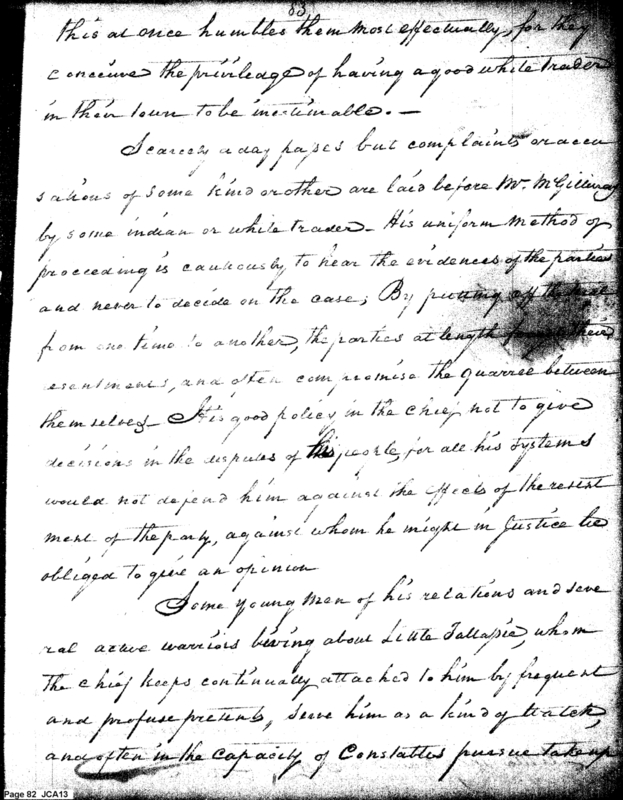 83
this at once humbles them most effectually, for they
conceive the priviledge of having a good white trader
in their town to be inestimable. —
Scarcely a day passes but complaints or accu
sations of some kind or other are laid before Mr. McGillivray
by some indian or white trader - His uniform method of
proceeding is cautiously to hear the evidences of the parties
and never to decide on the case; By putting off the
from one time to another, the parties at length their
resentments, and often compromise the quarrel between
themselves - It is good policy in the chief not to give
decisions in the disputes of his people, for all his systems
would not defend him against the effects of the resent
ment of the party, against whom he might in Justice be
obliged to give an opinion
Some young men of his relations and seve
ral active warriors living about Little Tallassie, whom
the chief keeps continually attached to him by frequent
and profuse presents, serve him as a kind of Watch,
and often in the capacity of Constables pursue take up
Page 82 JCA13